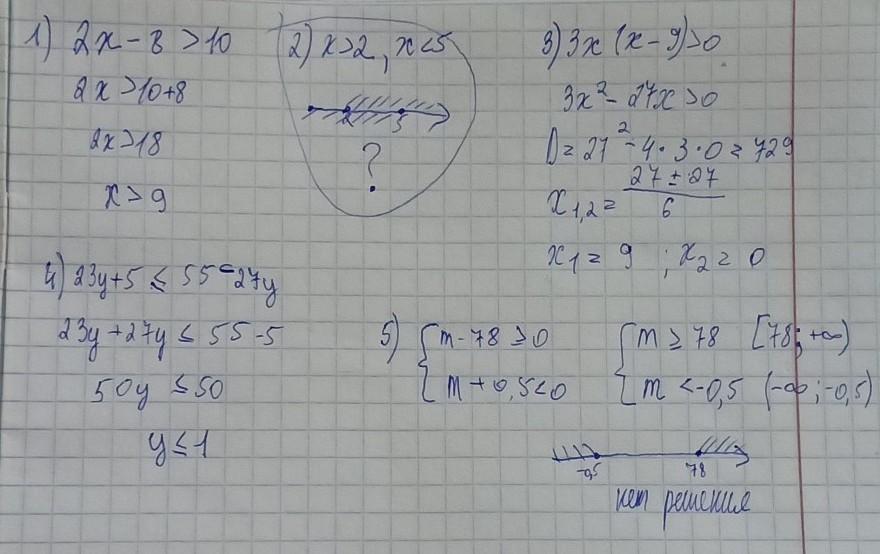 1) 2x - 8 > 10
2x > 10+8
2x > 18
x > 9
2) x > 2, x < 5
2 5
?
3) 3x (x - 9) > 0
3x² - 27x > 0
D = 27² - 4 · 3 · 0 = 729
x₁,₂ = (27 ± 27)/6
x₁ = 9 ; x₂ = 0
4) 23y + 5 ≤ 55 - 27y
23y + 27y ≤ 55 - 5
50y ≤ 50
y ≤ 1
5) { m - 78 ≥ 0 { m ≥ 78 [78; +∞)
m + 0,5 < 0 m < -0,5 (-∞; -0,5)
-0,5 78
нет решения